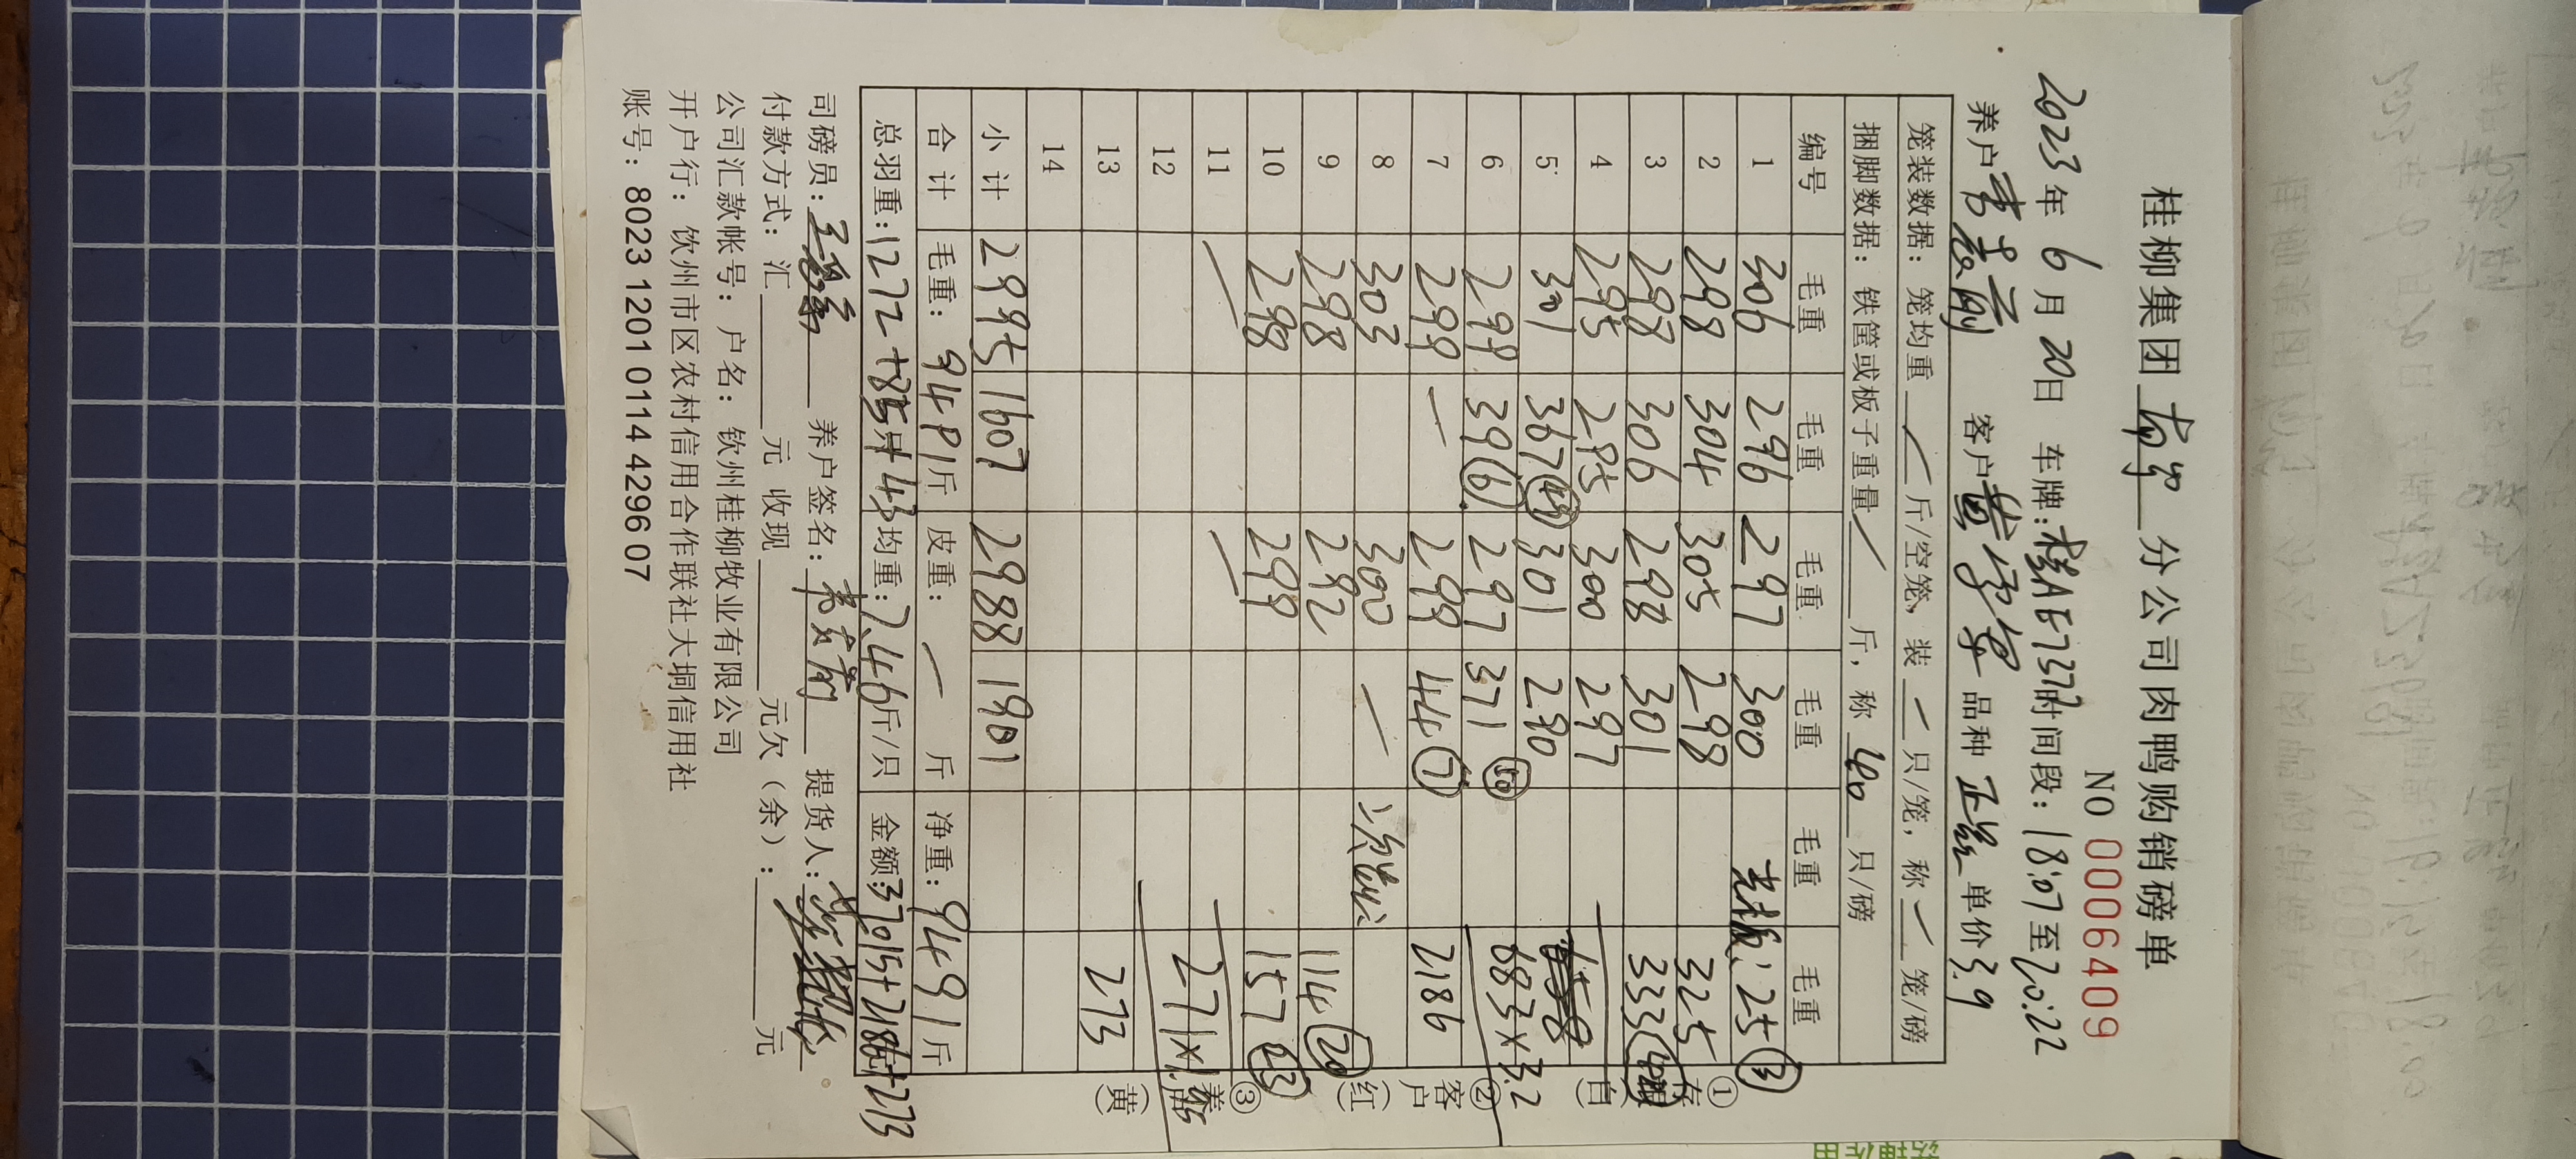 桂柳集团 南宁 分公司肉鸭购销磅单
NO 0006409
2023年 6月 20日 车牌:桂AE7377时间段:18:07至20:22
养户 客户 品种 正品 单价3.9
笼装数据: 笼均重 / 斤/空笼, 装 / 只/笼, 称 / 笼/磅
捆脚数据: 铁筐或板子重量 / 斤, 称 40 只/磅
编号 毛重 毛重 毛重 毛重 毛重 毛重
1 306 296 297 300 25③
2 298 304 305 298 325
3 298 306 298 301 333
4 295 295 300 297
5 301 367 301 290 683×3.2
6 299 39⑥ 297 371 (50)
7 299 — 299 44⑦ 2186
8 303 300 —
9 298 292 114(20)
10 298 299 157(23)
11 / / 271×1
12
13 273
14
小计 2995 1607 2988 1901
合计 毛重: 9491斤 皮重: / 斤 净重: 9491斤
总羽重:1272+ +43 均重:7.46斤/只 金额:37015+2186+273
①存(白)
②客户(红)
③养户(黄)
司磅员: 养户签名: 提货人:
付款方式: 汇 元 收现 元欠(余): 元
公司汇款帐号: 户名: 钦州桂柳牧业有限公司
开户行: 钦州市区农村信用合作联社大垌信用社
账号: 8023 1201 0114 4296 07